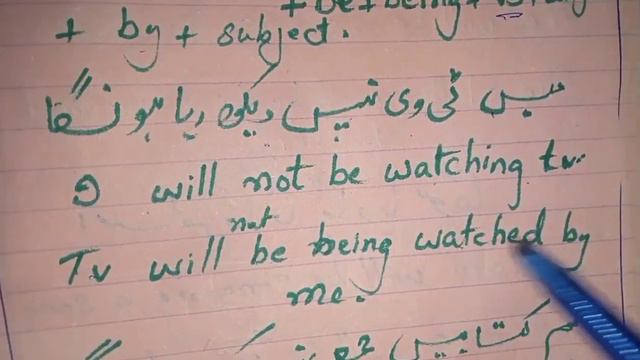 + be + being +
+ by + subject.
میں ٹی وی نہیں دیکھ رہا ہونگا
I will not be watching tv.
not
Tv will be being watched by
me.